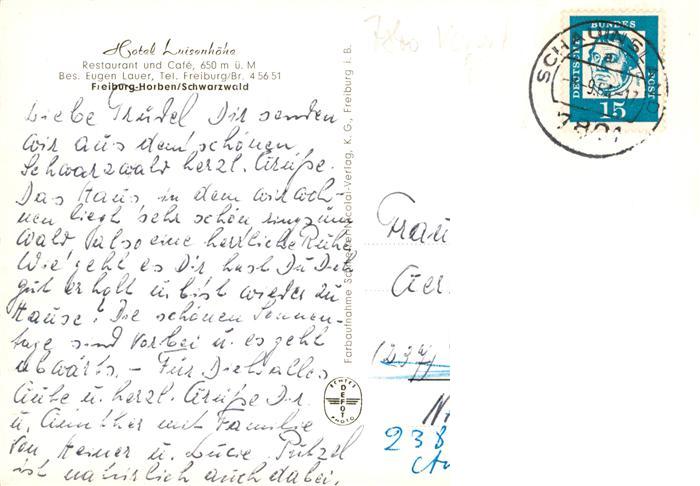 Hotel Luisenhöhe
Restaurant und Café, 650 m ü. M
Bes. Eugen Lauer, Tel. Freiburg/Br. 4 56 51
Freiburg-Horben/Schwarzwald
Liebe Trudel Dir senden
wir aus dem schönen
Schwarzwald herzl. Grüße.
Das Haus, in dem wir woh-
nen liegt sehr schön ringsum
Wald also eine herrliche Ruhe
Wie geht es Dir hast Du Dich
gut erholt u. bist wieder zu
Hause? Die schönen Sonnen-
tage sind vorbei u. es geht
abwärts. - Für Dich alles
Gute u. herzl. Grüße Dir
u. Günther mit Familie
von Heiner u. Lucie Putzel
ist natürlich auch dabei.
Farbaufnahme Nicolai-Verlag, K. G., Freiburg i. B.
ECHTES
DEFOT
PHOTO
DEUTSCHE
BUNDES
POST
15
SCHAUINSLAND
7801
Frau
238